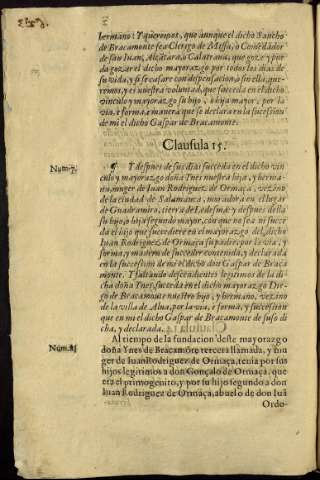 hermano: Y queremos, que aunque el dicho Sancho
de Bracamonte sea Clerigo de Missa, ò Comẽdador
de san Iuan, Alcãtara, ò Calatraua, que goze y pue
da gozar el dicho mayorazgo por todos los dias de
su vida, y si se casare con dispensacion, ò sin ella, que-
remos, y es nuestra voluntad, que succeda en el dicho
vinculo y mayorazgo su hijo, ò hija mayor, por la
via, è forma, è manera que se declara en la sucession
de mi el dicho Gaspar de Bracamonte.
Clausula 15.
Num. 7.
Y despues de sus dias succeda en el dicho vin
culo y mayorazgo doña Ynes nuestra hija, y herma-
na, muger de Iuan Rodriguez de Ormaça, vezino
de la ciudad de Salamanca, morador en el lugar
de Guadramiro, tierra de Ledesma: y despues della
su hijo, ò hija segundo mayor, con que no sea ni succe
da el hijo que succediere en el mayorazgo del dicho
Iuan Rodriguez de Ormaça su padre, por la via, y
forma, y madera de succeder contenida, y declarada
en la succession de mi el dicho don Gaspar de Braca
monte. Y faltando descendientes legitimos de la di
cha doña Ynes, succeda en el dicho mayorazgo Die-
go de Bracamonte nuestro hijo, y hermano, vezino
de la villa de Alua, por la via, è forma, y succession
que en mi el dicho Gaspar de Bracamonte de suso di
cha, y declarada.
Num. 8.
Al tiempo de la fundacion deste mayorazgo
doña Ynes de Bracamõte tercera llamada, y mu
ger de Iuan Rodriguez de Ormaça, tenia por sus
hijos legitimos a don Gonçalo de Ormaça, que
era el primogenito, y por su hijo segundo a don
Iuan Rodriguez de Ormaça, abuelo de don Iuã
Ordo-